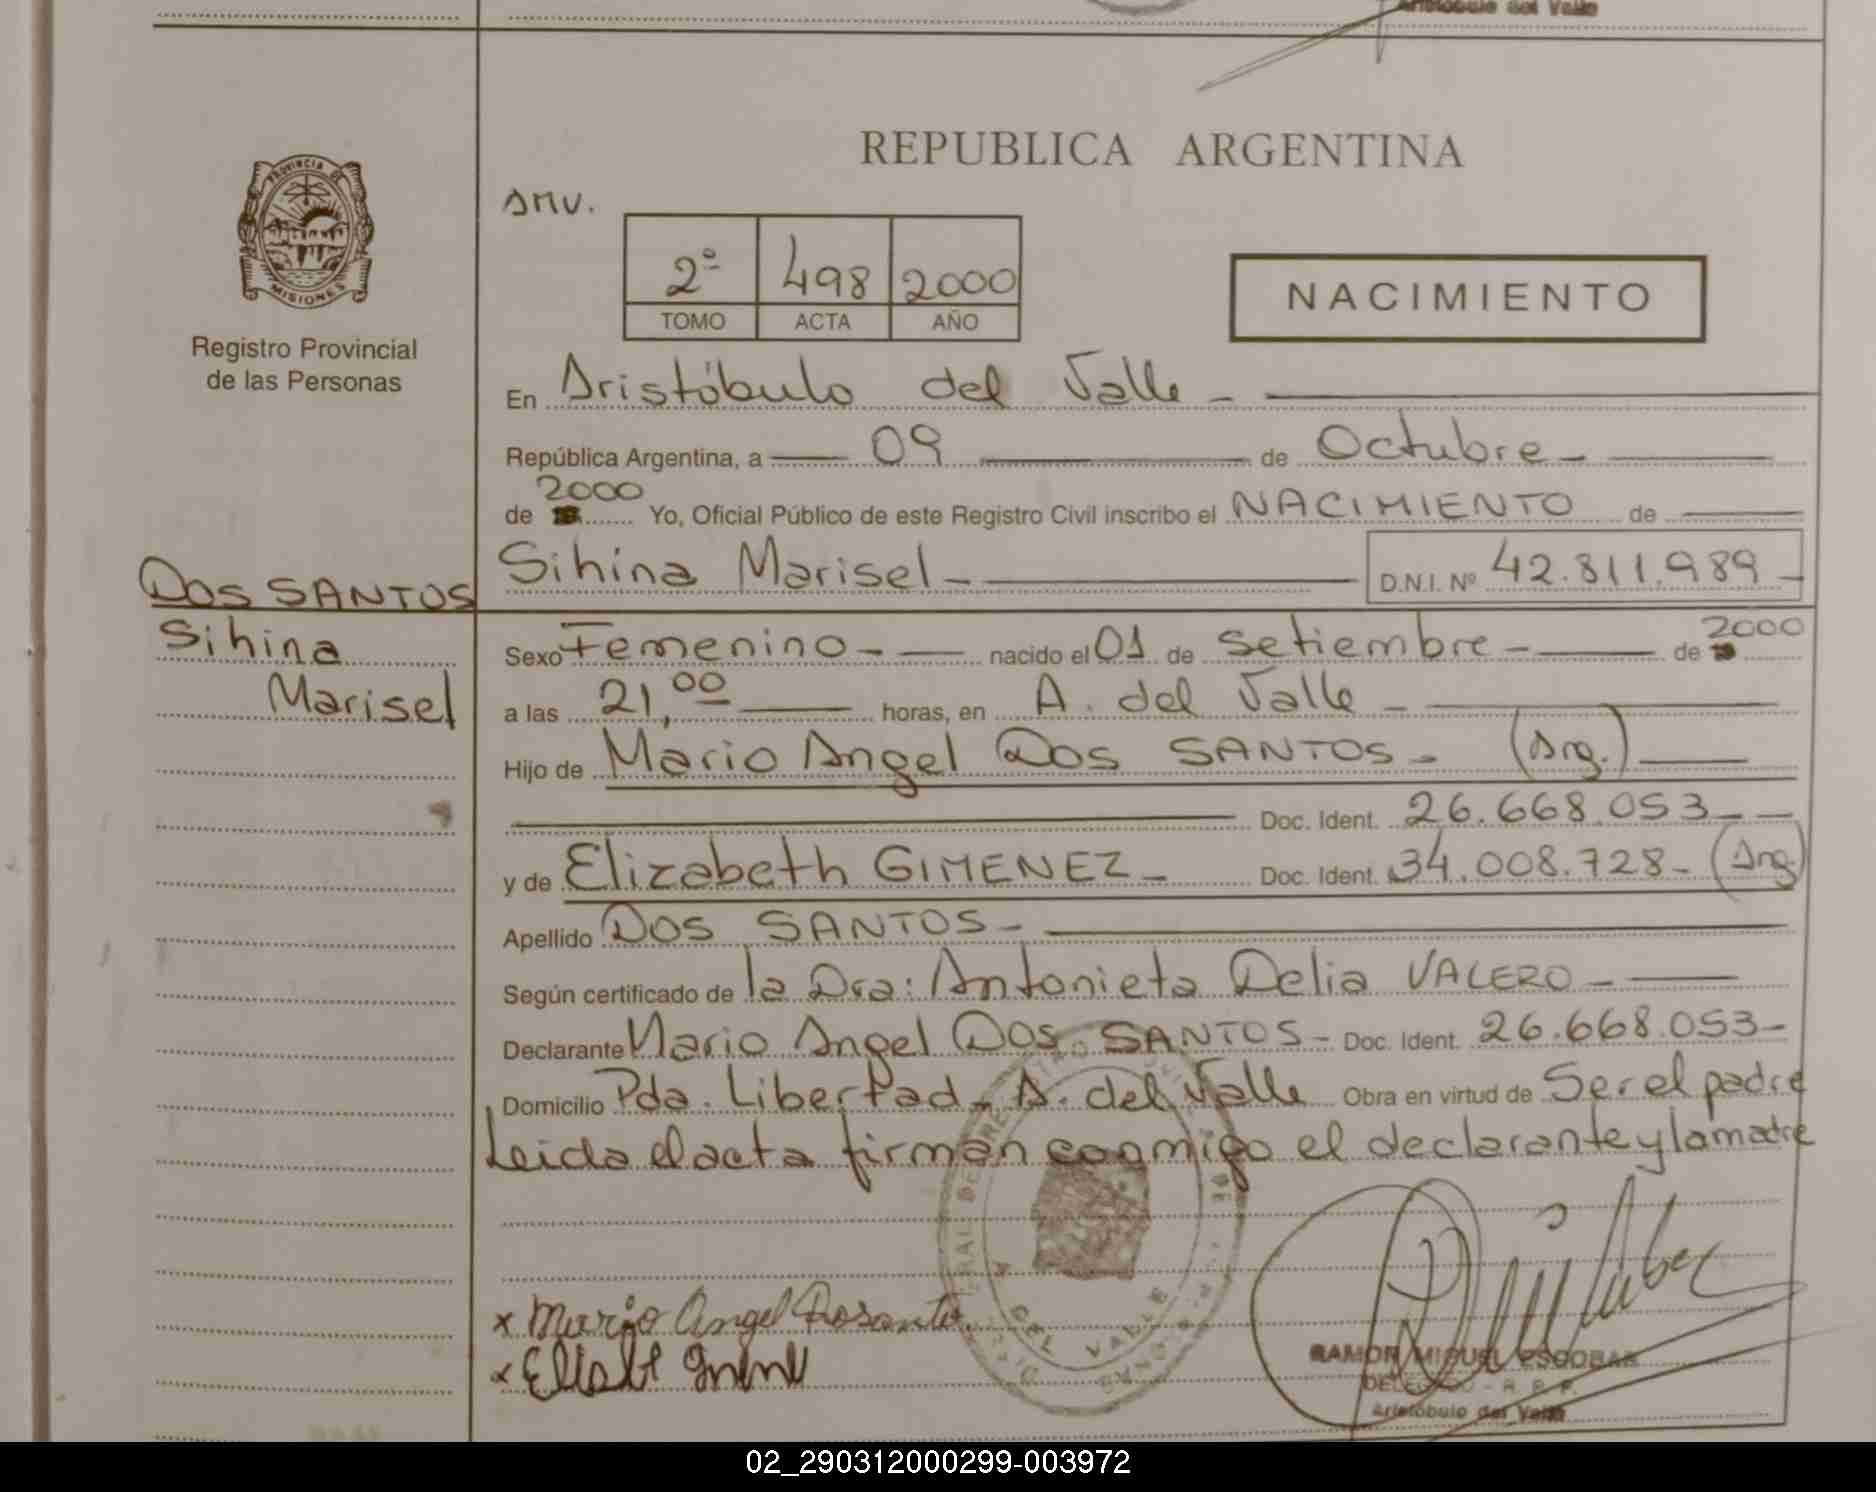 Aristóbulo del Valle
REPUBLICA ARGENTINA
PROVINCIA DE
MISIONES
Registro Provincial
de las Personas
AMV.
2º 498 2000
TOMO ACTA AÑO
NACIMIENTO
En Aristóbulo del Valle -
República Argentina, a 09 de Octubre -
de 2000 Yo, Oficial Público de este Registro Civil inscribo el NACIMIENTO de
Sihina Marisel - D.N.I. Nº 42.811.989 -
DOS SANTOS
Sihina
Marisel
Sexo Femenino - nacido el 01 de setiembre - de 2000
a las 21,00 horas, en A. del Valle -
Hijo de Mario Angel DOS SANTOS - (Arg.)
Doc. Ident. 26.668.053 -
y de Elizabeth GIMENEZ - Doc. Ident. 34.008.728 - (Arg.)
Apellido DOS SANTOS -
Según certificado de la Dra: Antonieta Delia VALERO -
Declarante Mario Angel DOS SANTOS - Doc. Ident. 26.668.053 -
Domicilio Pda. Libertad - A. del Valle Obra en virtud de Ser el padre
Leida el acta firman conmigo el declarante y la madre
x Mario Angel Dosantos
x
A. DEL VALLE
RAMON MIGUEL ESCOBAR
DELEGADO - R. P. P.
Aristóbulo del Valle
02_290312000299-003972